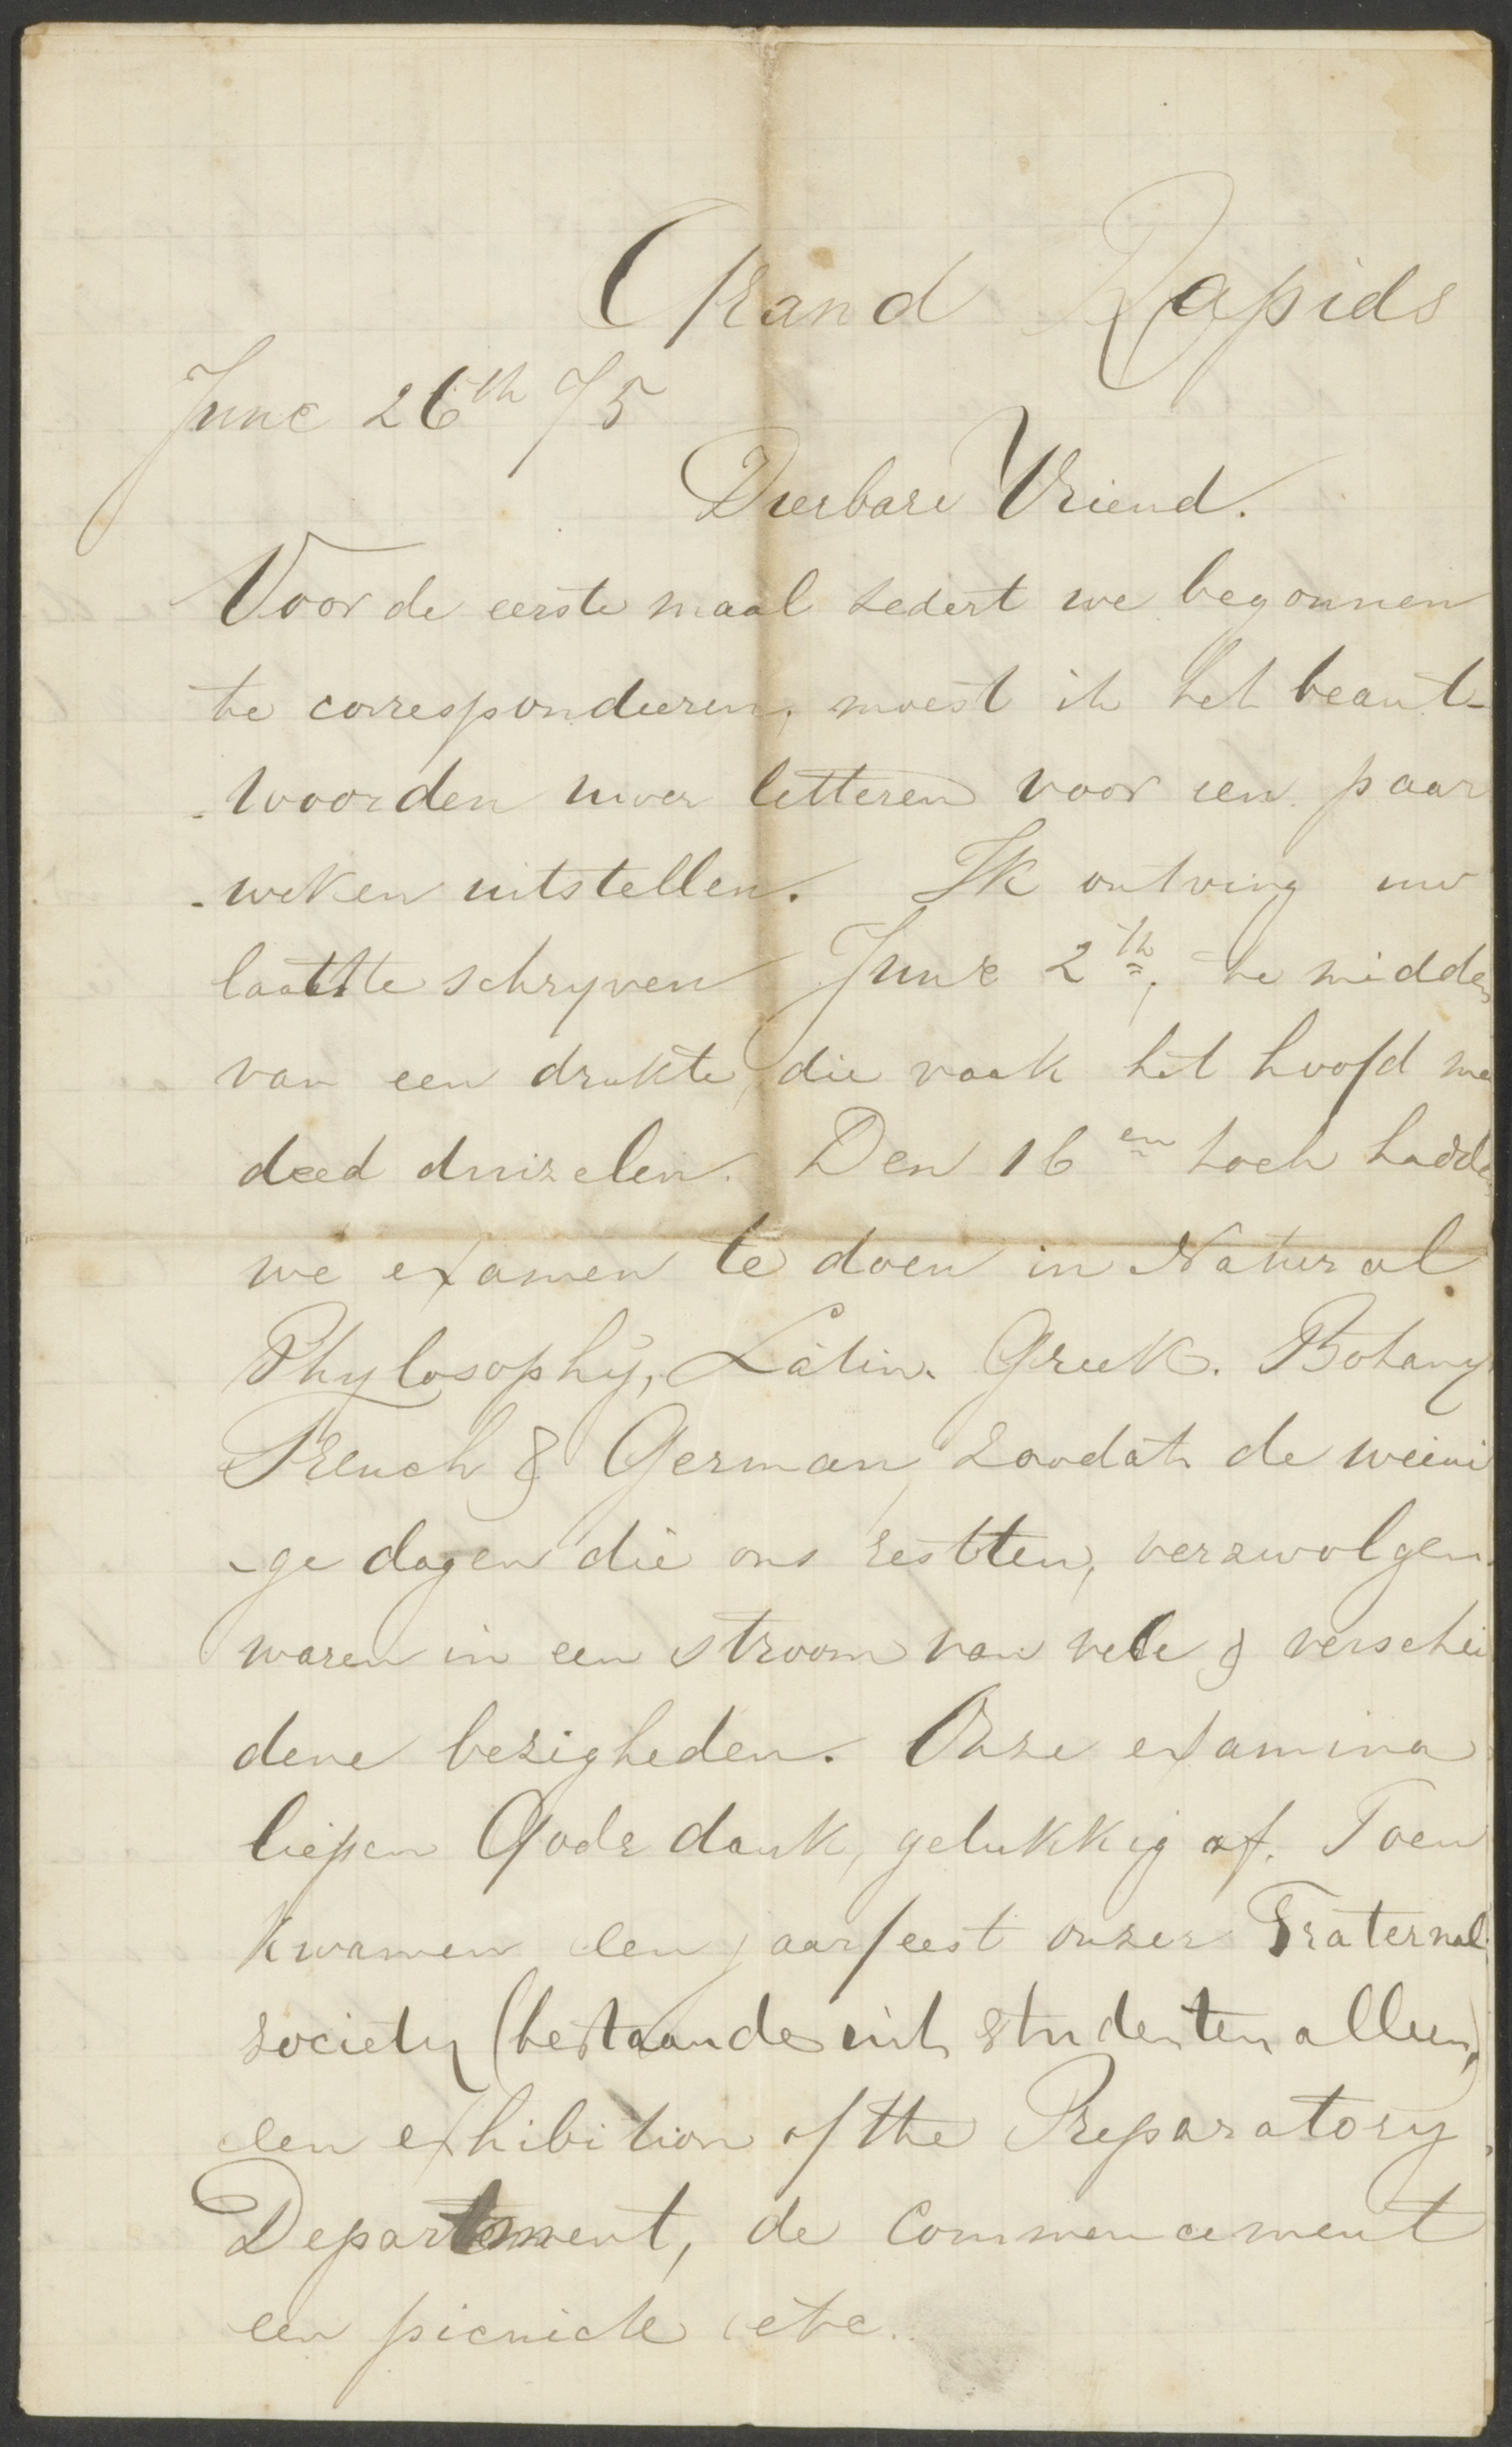 Grand Rapids
June 26th /75
Dierbare Vriend.
Voor de eerste maal sedert we begonnen
te correspondeeren, moest ik het beant-
-woorden uwer letteren voor een paar
-weken uitstellen. Ik ontving uw
laatste schryven June 2th, te midden
van een drukte, die vaak het hoofd me
deed duizelen. Den 16en toch hadde
we examen te doen in Natural
Phylosophy, Latin. Greek. Botany
French & German, zoodat de weini
-ge dagen die ons restten, verzwolgen
waren in een stroom van vele & verschei
dene bezigheden. Onze examina
liepen Gode dank, gelukkig af. Toen
kwamen een jaarfeest onzer Fraternal
society (bestaande uit studenten alleen)
een exhibition of the Preparatory
Department, de Commencement
een picnick etc.